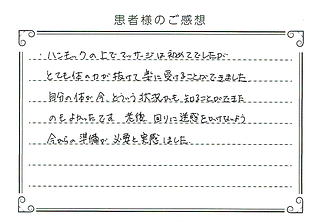 患者様のご感想
・ハンモックの上でマッサージは初めてでしたが
とても体の力が抜けて楽に受けることができました
自分の体が今、どういう状況かも知ることができた
のもよかったです 老後 回りに迷惑をかけないよう
今からの準備が必要と実感しました.